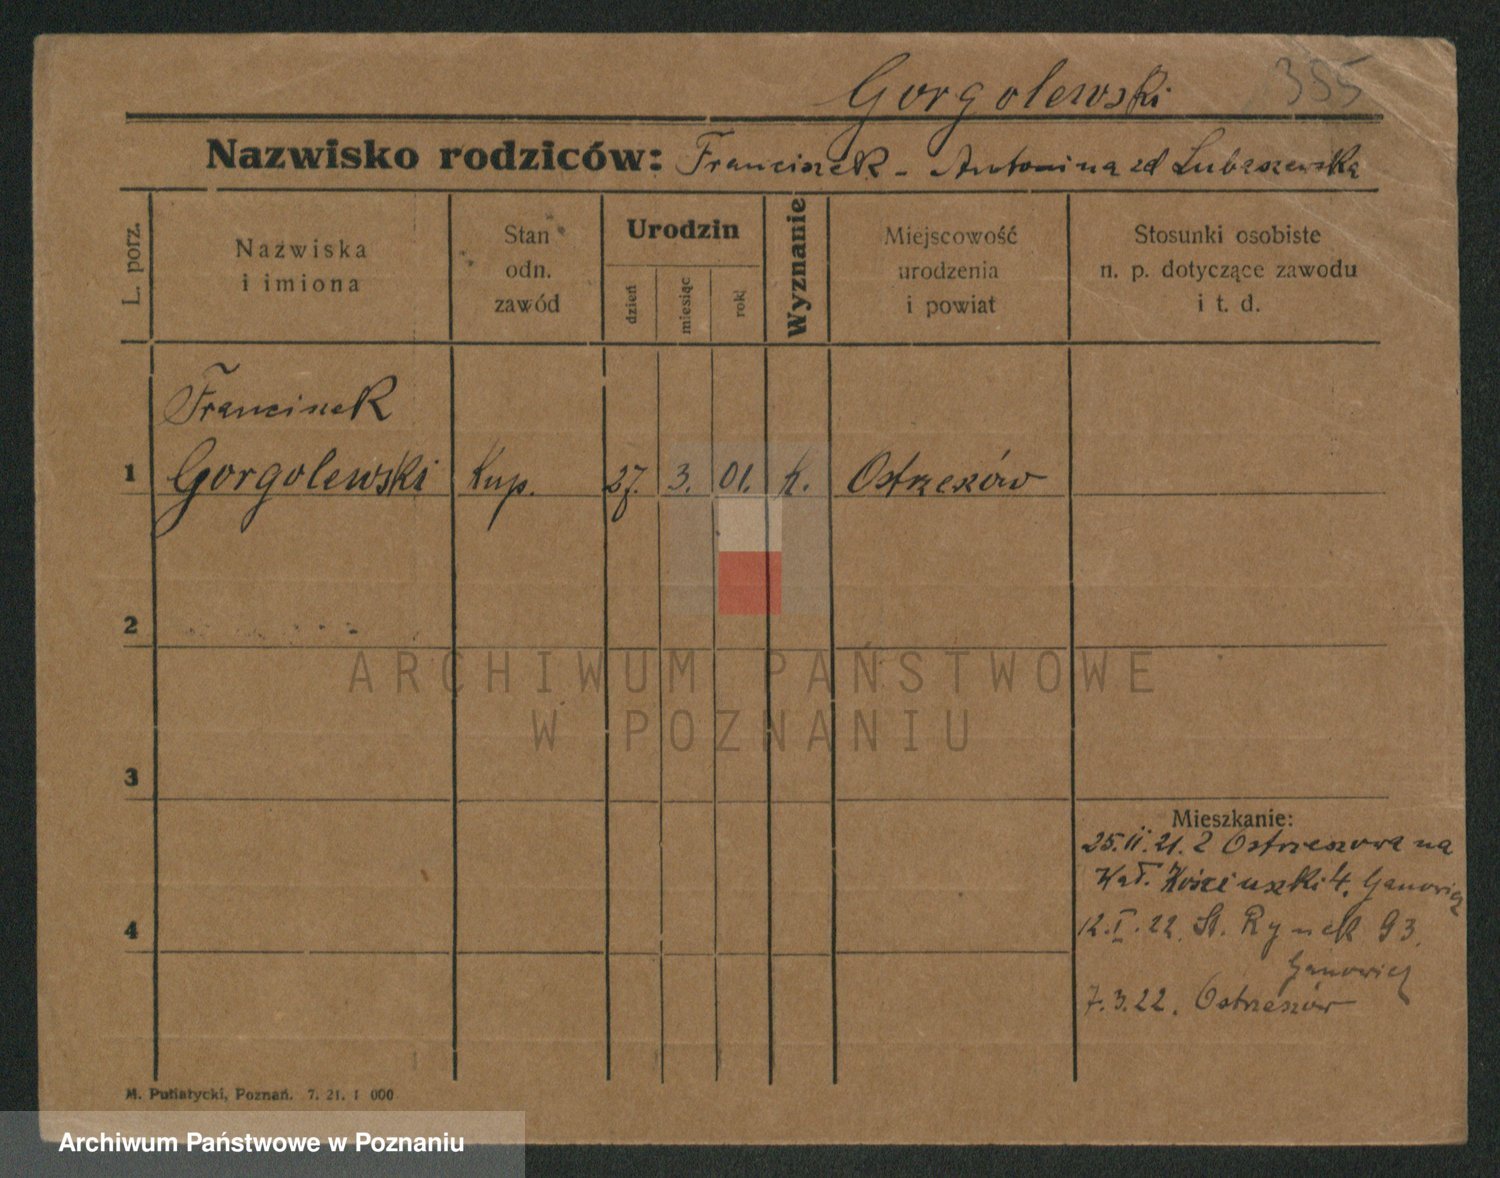 Gorgolewski 355
Nazwisko rodziców: Franciszek - Antonina zd Lubaszewska
L. porz.
Nazwiska
i imiona
Stan
odn.
zawód
Urodzin
dzień
miesiąc
rok
Wyznanie
Miejscowość
urodzenia
i powiat
Stosunki osobiste
n. p. dotyczące zawodu
i t. d.
Franciszek
1 Gorgolewski Kup. 27. 3. 01. k. Ostrzeszów
2
ARCHIWUM PAŃSTWOWE
W POZNANIU
3
Mieszkanie:
25.II.21. z Ostrzeszowa na
Wał. Kościuszki 4. Ganowicz
4
12.I.22. St. Rynek 93.
Ganowicz
7.3.22. Ostrzeszów
M. Putiatycki, Poznań. 7. 21. 1 000
Archiwum Państwowe w Poznaniu